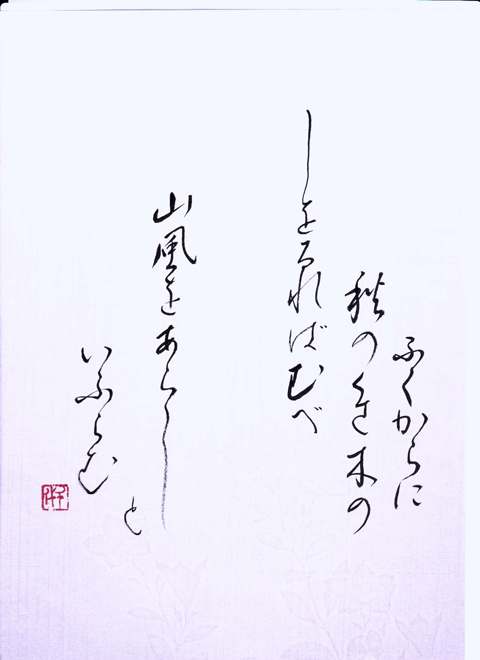 ふくからに
秋のくさ木の
しをるればむべ
山風をあらし
と
いふらむ